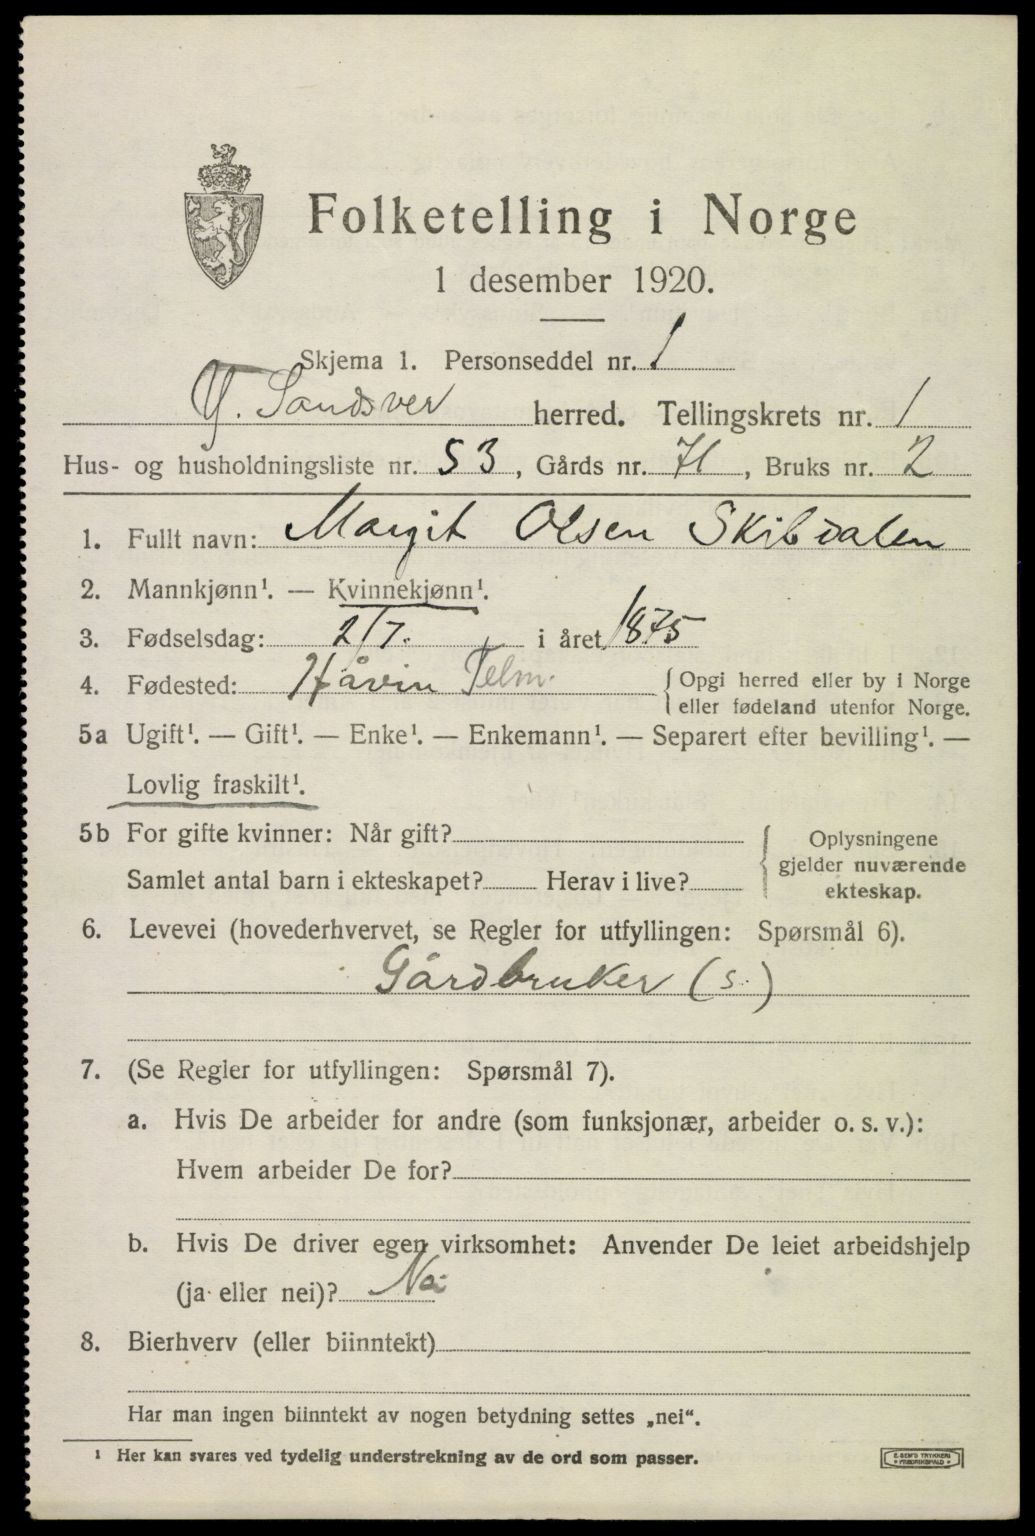 Folketelling i Norge
1 desember 1920.
Skjema 1. Personseddel nr. 1
Y. Sandsver herred. Tellingskrets nr. 1
Hus- og husholdningsliste nr. 53, Gårds nr. 71, Bruks nr. 2
1. Fullt navn: Margit Olsen Skibdalen
2. Mannkjønn¹. — Kvinnekjønn¹.
3. Fødselsdag: 2/7. i året 1875
4. Fødested: Håvin Telm. { Opgi herred eller by i Norge
eller fødeland utenfor Norge.
5a Ugift¹. — Gift¹. — Enke¹. — Enkemann¹. — Separert efter bevilling¹. —
Lovlig fraskilt¹.
5b For gifte kvinner: Når gift?
Samlet antal barn i ekteskapet? Herav i live?
Oplysningene
gjelder nuværende
ekteskap.
6. Levevei (hovederhvervet, se Regler for utfyllingen: Spørsmål 6).
Gårdbruker (s.)
7. (Se Regler for utfyllingen: Spørsmål 7).
a. Hvis De arbeider for andre (som funksjonær, arbeider o. s. v.):
Hvem arbeider De for?
b. Hvis De driver egen virksomhet: Anvender De leiet arbeidshjelp
(ja eller nei)? Nei
8. Bierhverv (eller biinntekt)
Har man ingen biinntekt av nogen betydning settes „nei“.
¹ Her kan svares ved tydelig understrekning av de ord som passer.